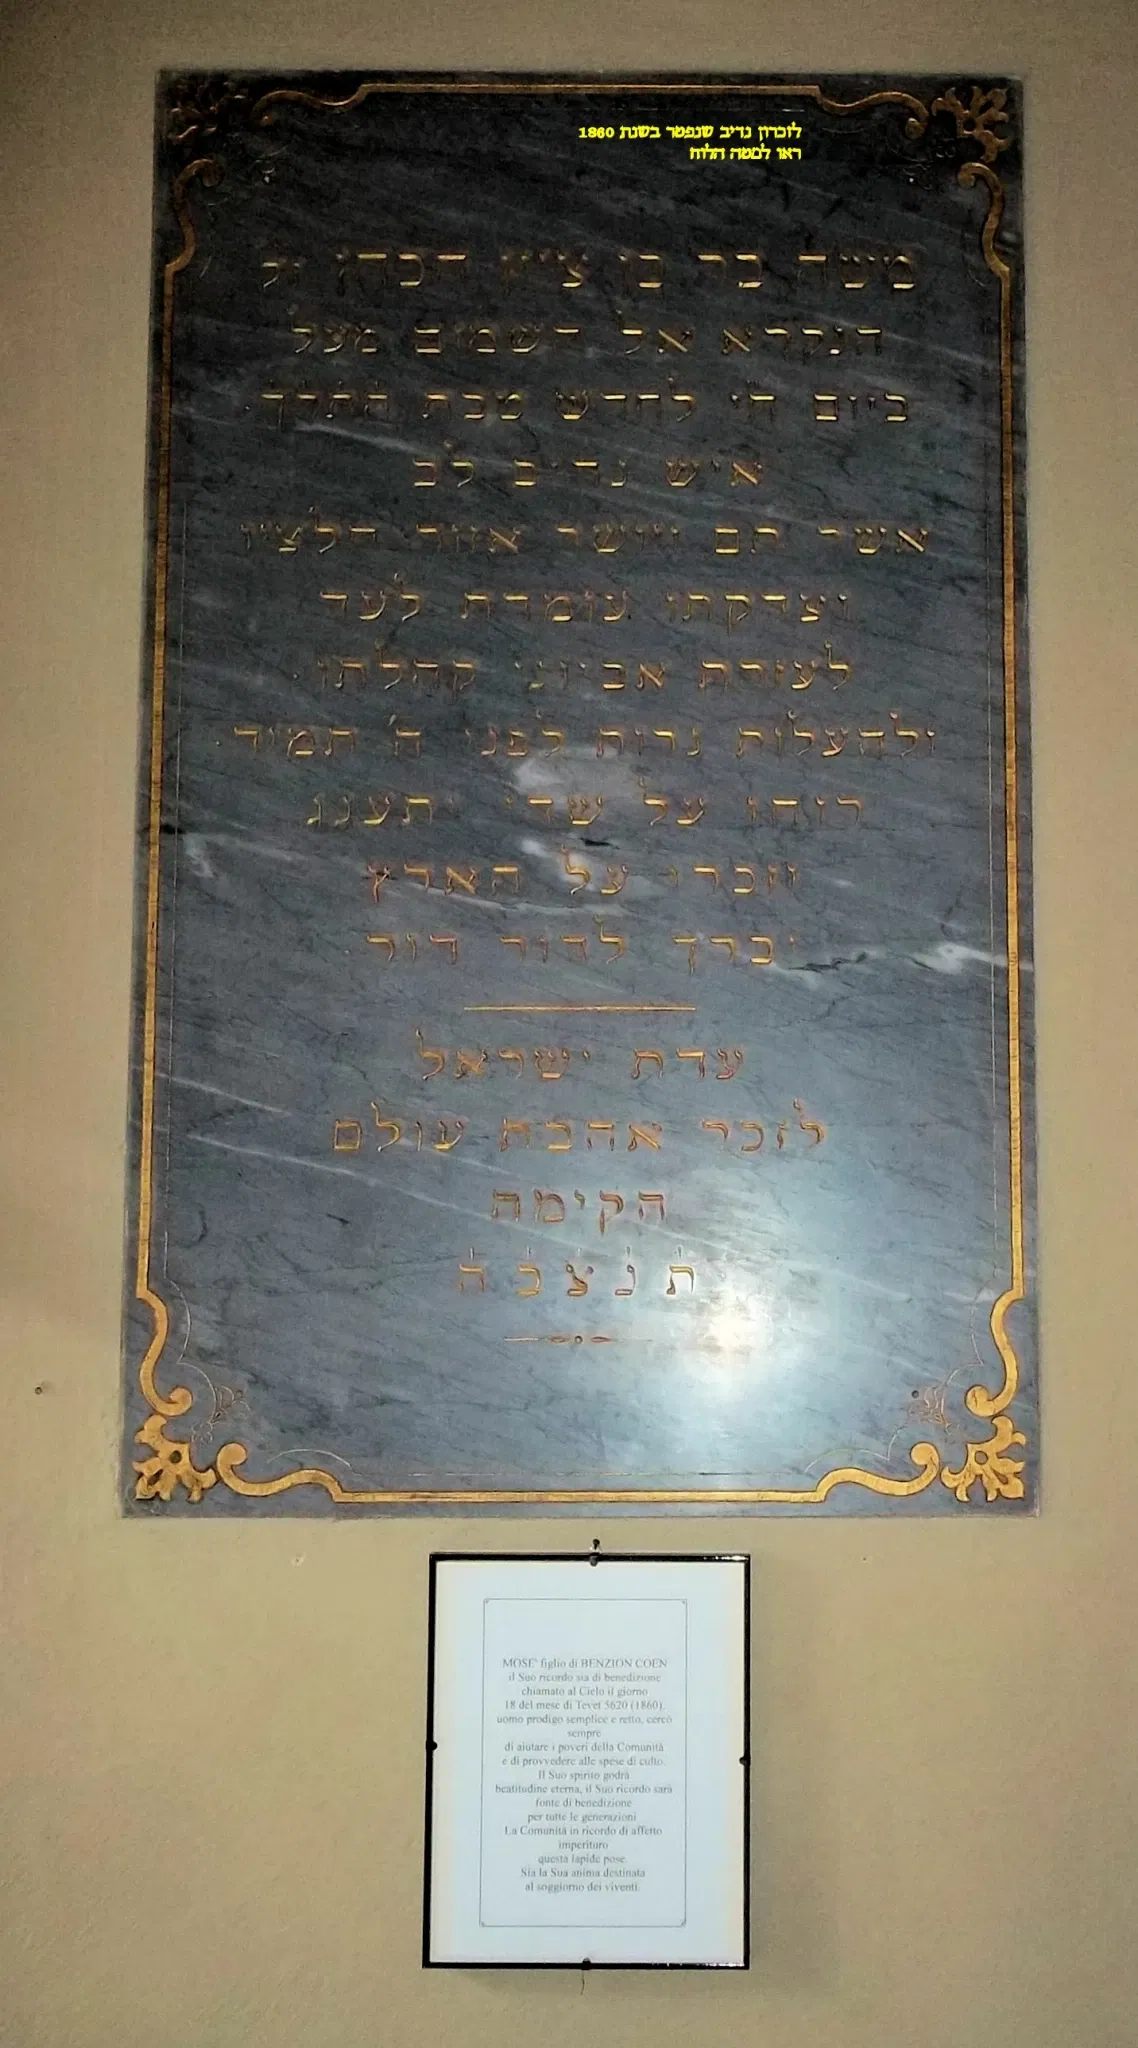 לזכרון נדיב שנפטר בשנת 1860
ראו למטה הלוח
משה בר בן ציון הכהן זל
הנקרא אל השמים מעל
ביום חי לחדש טבת התרך
איש נדיב לב
אשר תם ויושר אזור חלציו
וצדקתו עומדת לעד
לעזרת אביוני קהלתו
ולהעלות נרות לפני ה' תמיד
רוחו על שדי יתענג
וזכרו על הארץ
יברך לדור דור
עדת ישראל
לזכר אהבת עולם
הקימה
ת נ צ ב ה
MOSE' figlio di BENZION COEN
il Suo ricordo sia di benedizione
chiamato al Cielo il giorno
18 del mese di Tevet 5620 (1860),
uomo prodigo semplice e retto, cercò
sempre
di aiutare i poveri della Comunità
e di provvedere alle spese di culto.
Il Suo spirito godrà
beatitudine eterna, il Suo ricordo sarà
fonte di benedizione
per tutte le generazioni
La Comunità in ricordo di affetto
imperituro
questa lapide pose.
Sia la Sua anima destinata
al soggiorno dei viventi.